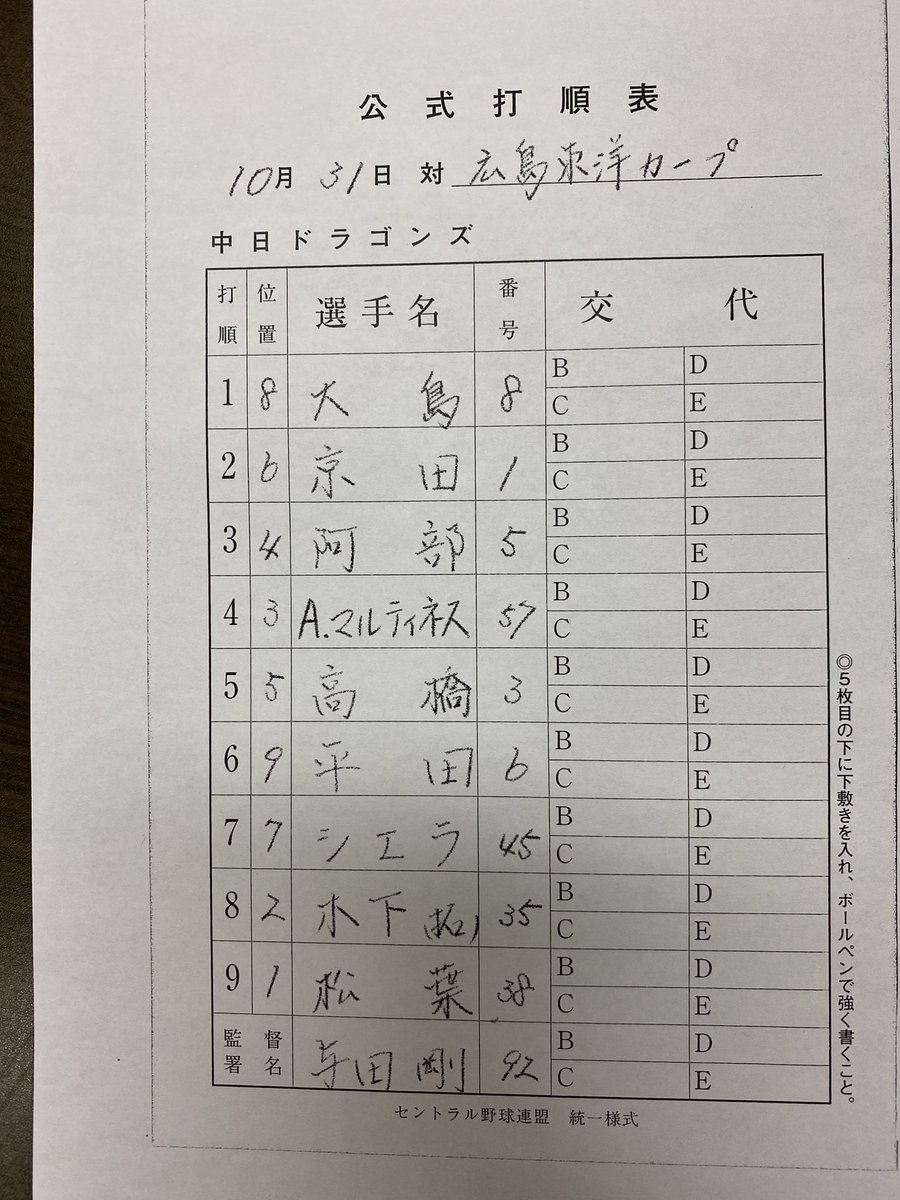 公式打順表
10月31日 対 広島東洋カープ
中日ドラゴンズ
打順 位置 選手名 番号 交代
1 8 大島 8 B D C E
2 6 京田 1 B D C E
3 4 阿部 5 B D C E
4 3 A.マルティネス 57 B D C E
5 5 高橋 3 B D C E
6 9 平田 6 B D C E
7 7 シエラ 45 B D C E
8 2 木下(拓) 35 B D C E
9 1 松葉 38 B D C E
監督署名 与田剛 92 B D C E
セントラル野球連盟 統一様式
◎5枚目の下に下敷きを入れ、ボールペンで強く書くこと。